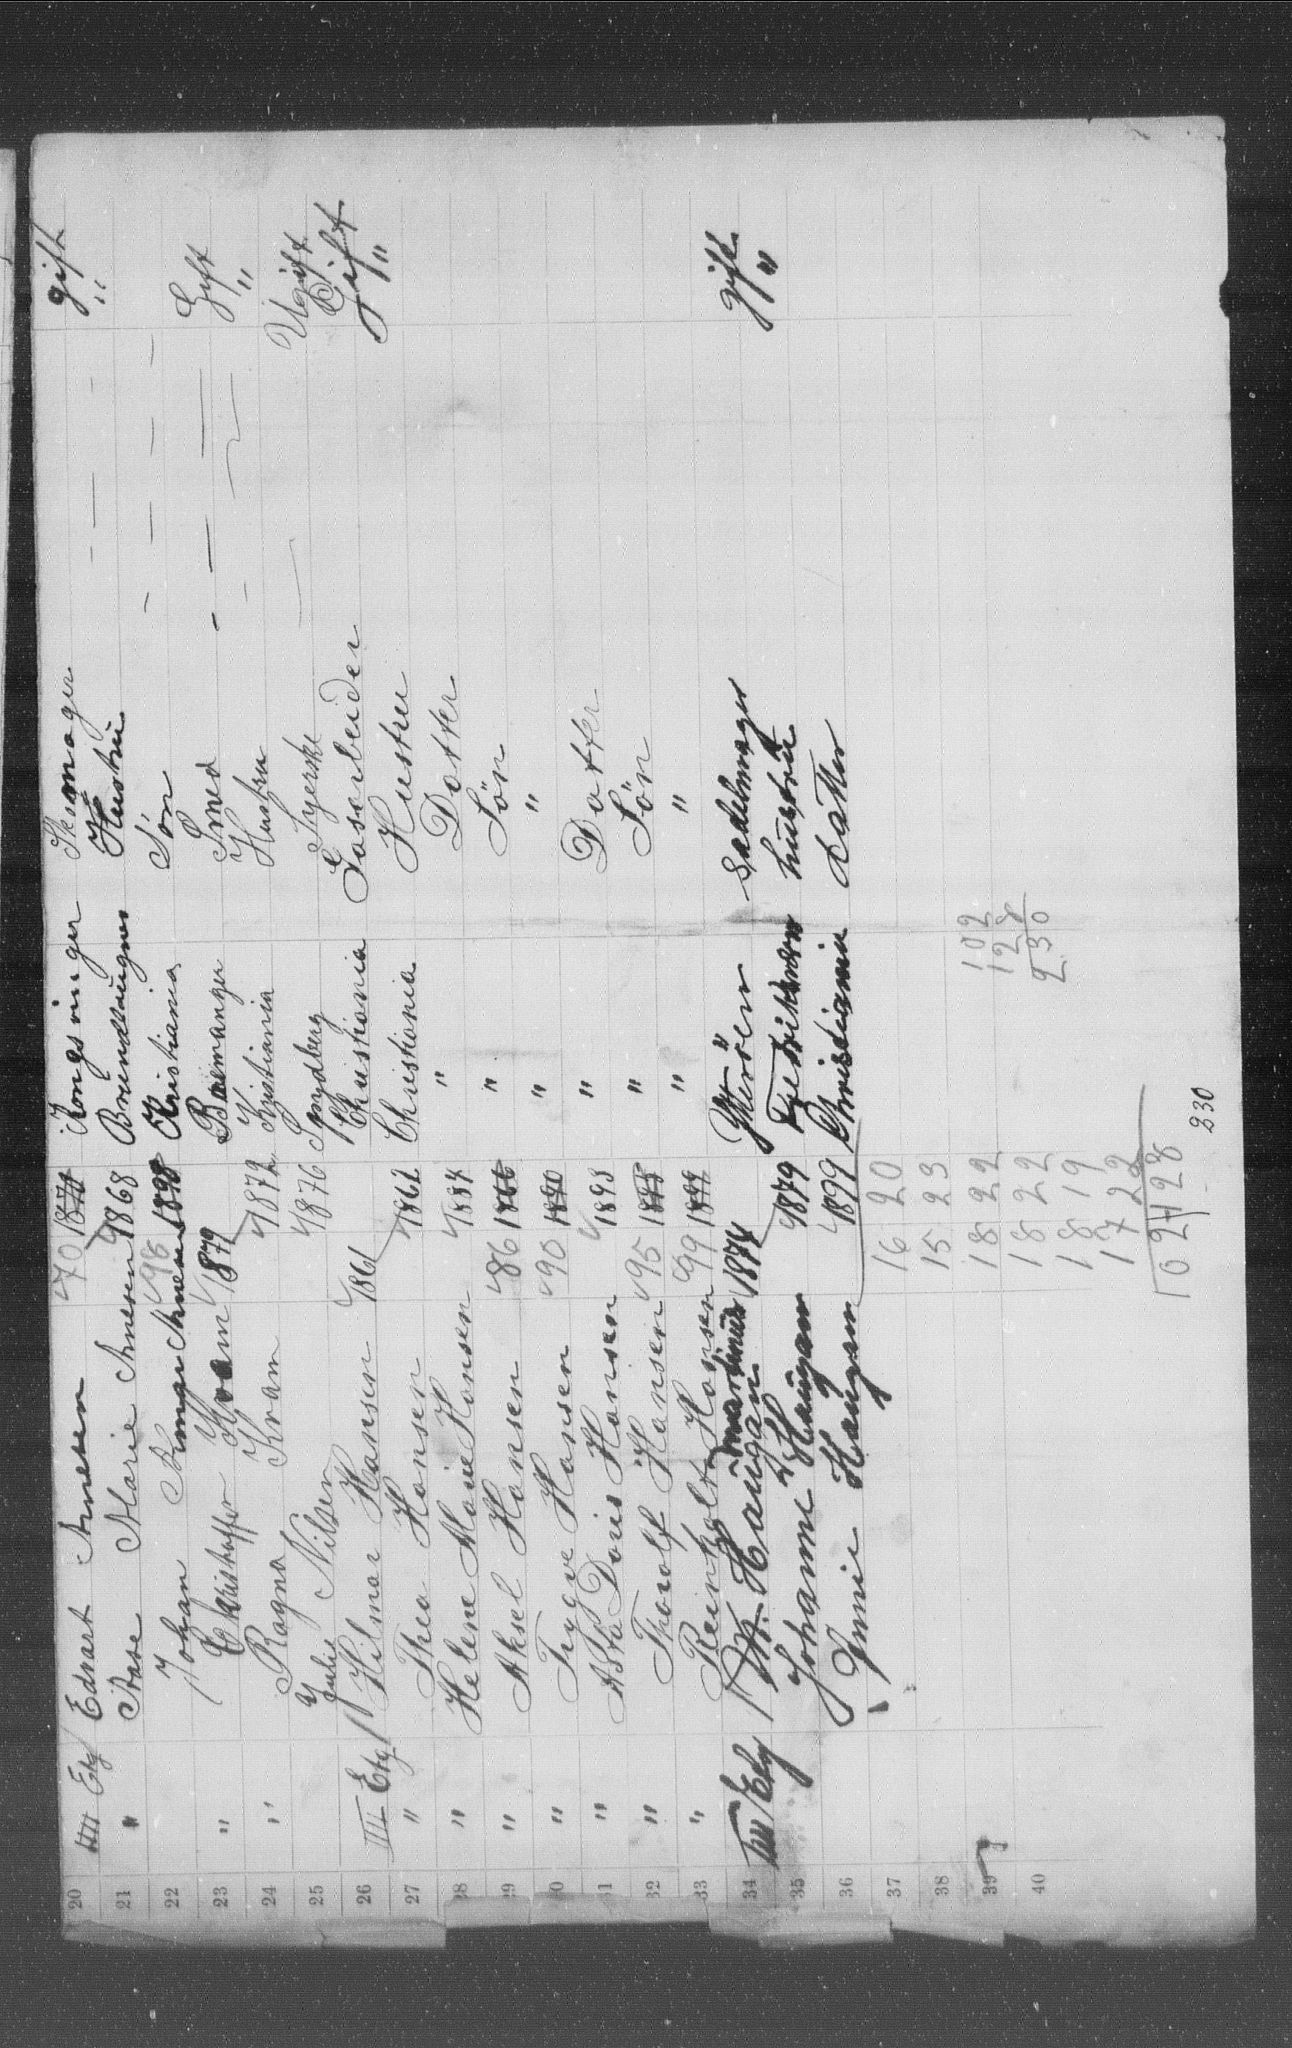 20 III Etg Edvart Arnesen 70 1870 Kongsvinger Skomager gift
21 " Aase Marie Arnesen 1868 Hustru "
22 Johan Arnesen 98 1898 Kristiania Søn
23 " Kristoffer Kvam 1879 Smed Gift
24 " Ragna Kvam 1872 Kristiania Hustru "
25 Julie Nilsen 1876 Syerske Ugift
26 III Etg Hilmar Hansen 1861 Christiania Gasarbeider Gift
27 " Thea Hansen 1862 Christiania Hustru "
28 " Helene Marie Hansen 1884 " Datter
29 " Aksel Hansen 86 1886 " Søn
30 " Trygve Hansen 90 1890 " "
31 " Asta Doris Hansen 1893 " Datter
32 " Thorolf Hansen 95 1895 " Søn
33 " Reinholt Hansen 99 1899 " "
34 III Etg Haugan Martinus 1874 sadelmager gift
35 Johanne Haugan 1879 hustru "
36 Haugan 1899 Christiania datter
37 16 20
38 15 23
39 18 22 102
40 18 22 128
18 19 230
17 22
102 128
230